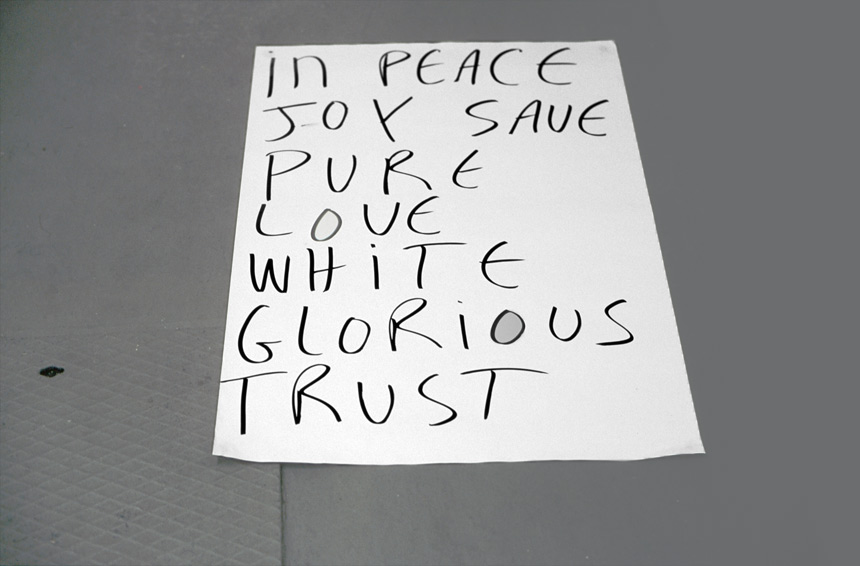 in PEACE
JOY SAVE
PURE
LOVE
WHiTE
GLORiOUS
TRUST